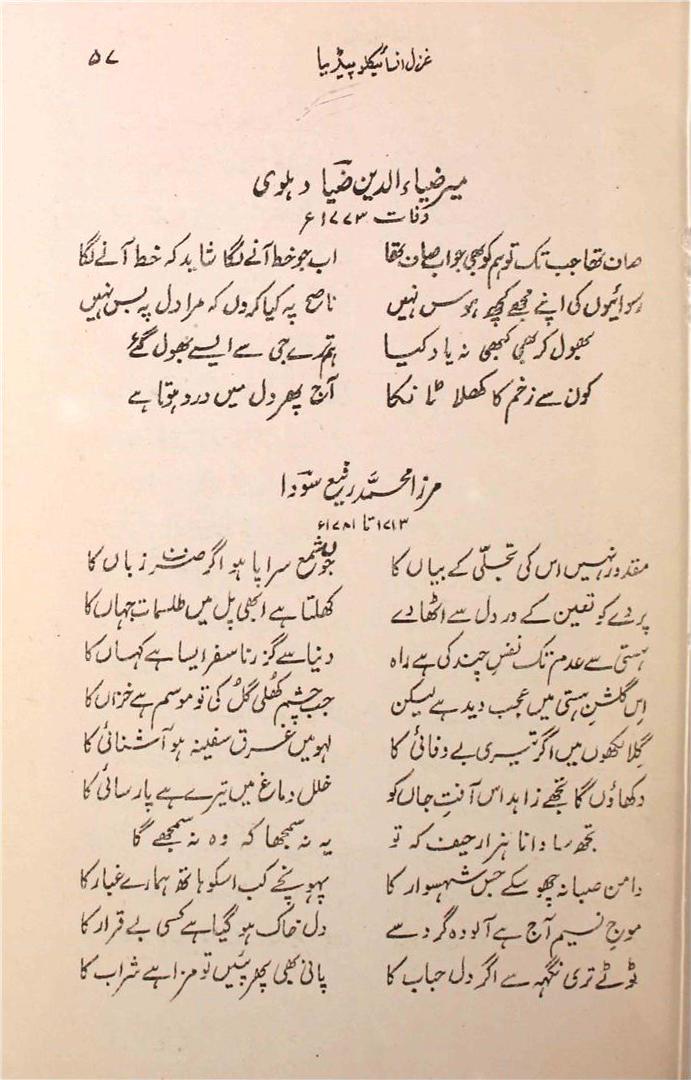 غزل انسائیکلوپیڈیا ۵۷
میر ضیاء الدین ضیا دہلوی
وفات ۱۷۷۳ء
صاف تھا جب تک تو ہم کو بھی جواب صاف تھا اب جو خط آنے لگا شاید کہ خط آنے لگا
رسوائیوں کی اپنے مجھے کچھ ہوس نہیں ناصح پہ کیا کروں کہ مرا دل پہ بس نہیں
بھول کر بھی کبھی نہ یاد کیا ہم ترے جی سے ایسے بھول گئے
کون سے زخم کا کھلا ٹانکا آج پھر دل میں درد ہوتا ہے
مرزا محمد رفیع سودا
۱۷۱۳ تا ۱۷۸۱ء
مقدور نہیں اس کی تجلّی کے بیاں کا جوں شمع سراپا ہو اگر صرف زباں کا
پردے کو تعین کے در دل سے اٹھا دے کھلتا ہے ابھی پل میں طلسمات جہاں کا
ہستی سے عدم تک نفسِ چند کی ہے راہ دنیا سے گزرنا سفر ایسا ہے کہاں کا
اِس گلشنِ ہستی میں عجب دید ہے لیکن جب چشم کھُلی گُل کی تو موسم ہے خزاں کا
گِلا لکھوں میں اگر تیری بے وفائی کا لہو میں غرق سفینہ ہو آشنائی کا
دکھاؤں گا تجھے زاہد اس آفتِ جاں کو خلل دماغ میں تیرے ہے پارسائی کا
تجھ سا دانا ہزار حیف کہ تو یہ نہ سمجھا کہ وہ نہ سمجھے گا
دامن صبا نہ چھو سکے جس شہسوار کا پہونچے کب اسکو ہاتھ ہمارے غبار کا
موجِ نسیم آج ہے آلودہ گرد سے دل خاک ہو گیا ہے کسی بے قرار کا
ٹوٹے تری نگہہ سے اگر دل حباب کا پانی بھی پھر پئیں تو مزا ہے شراب کا